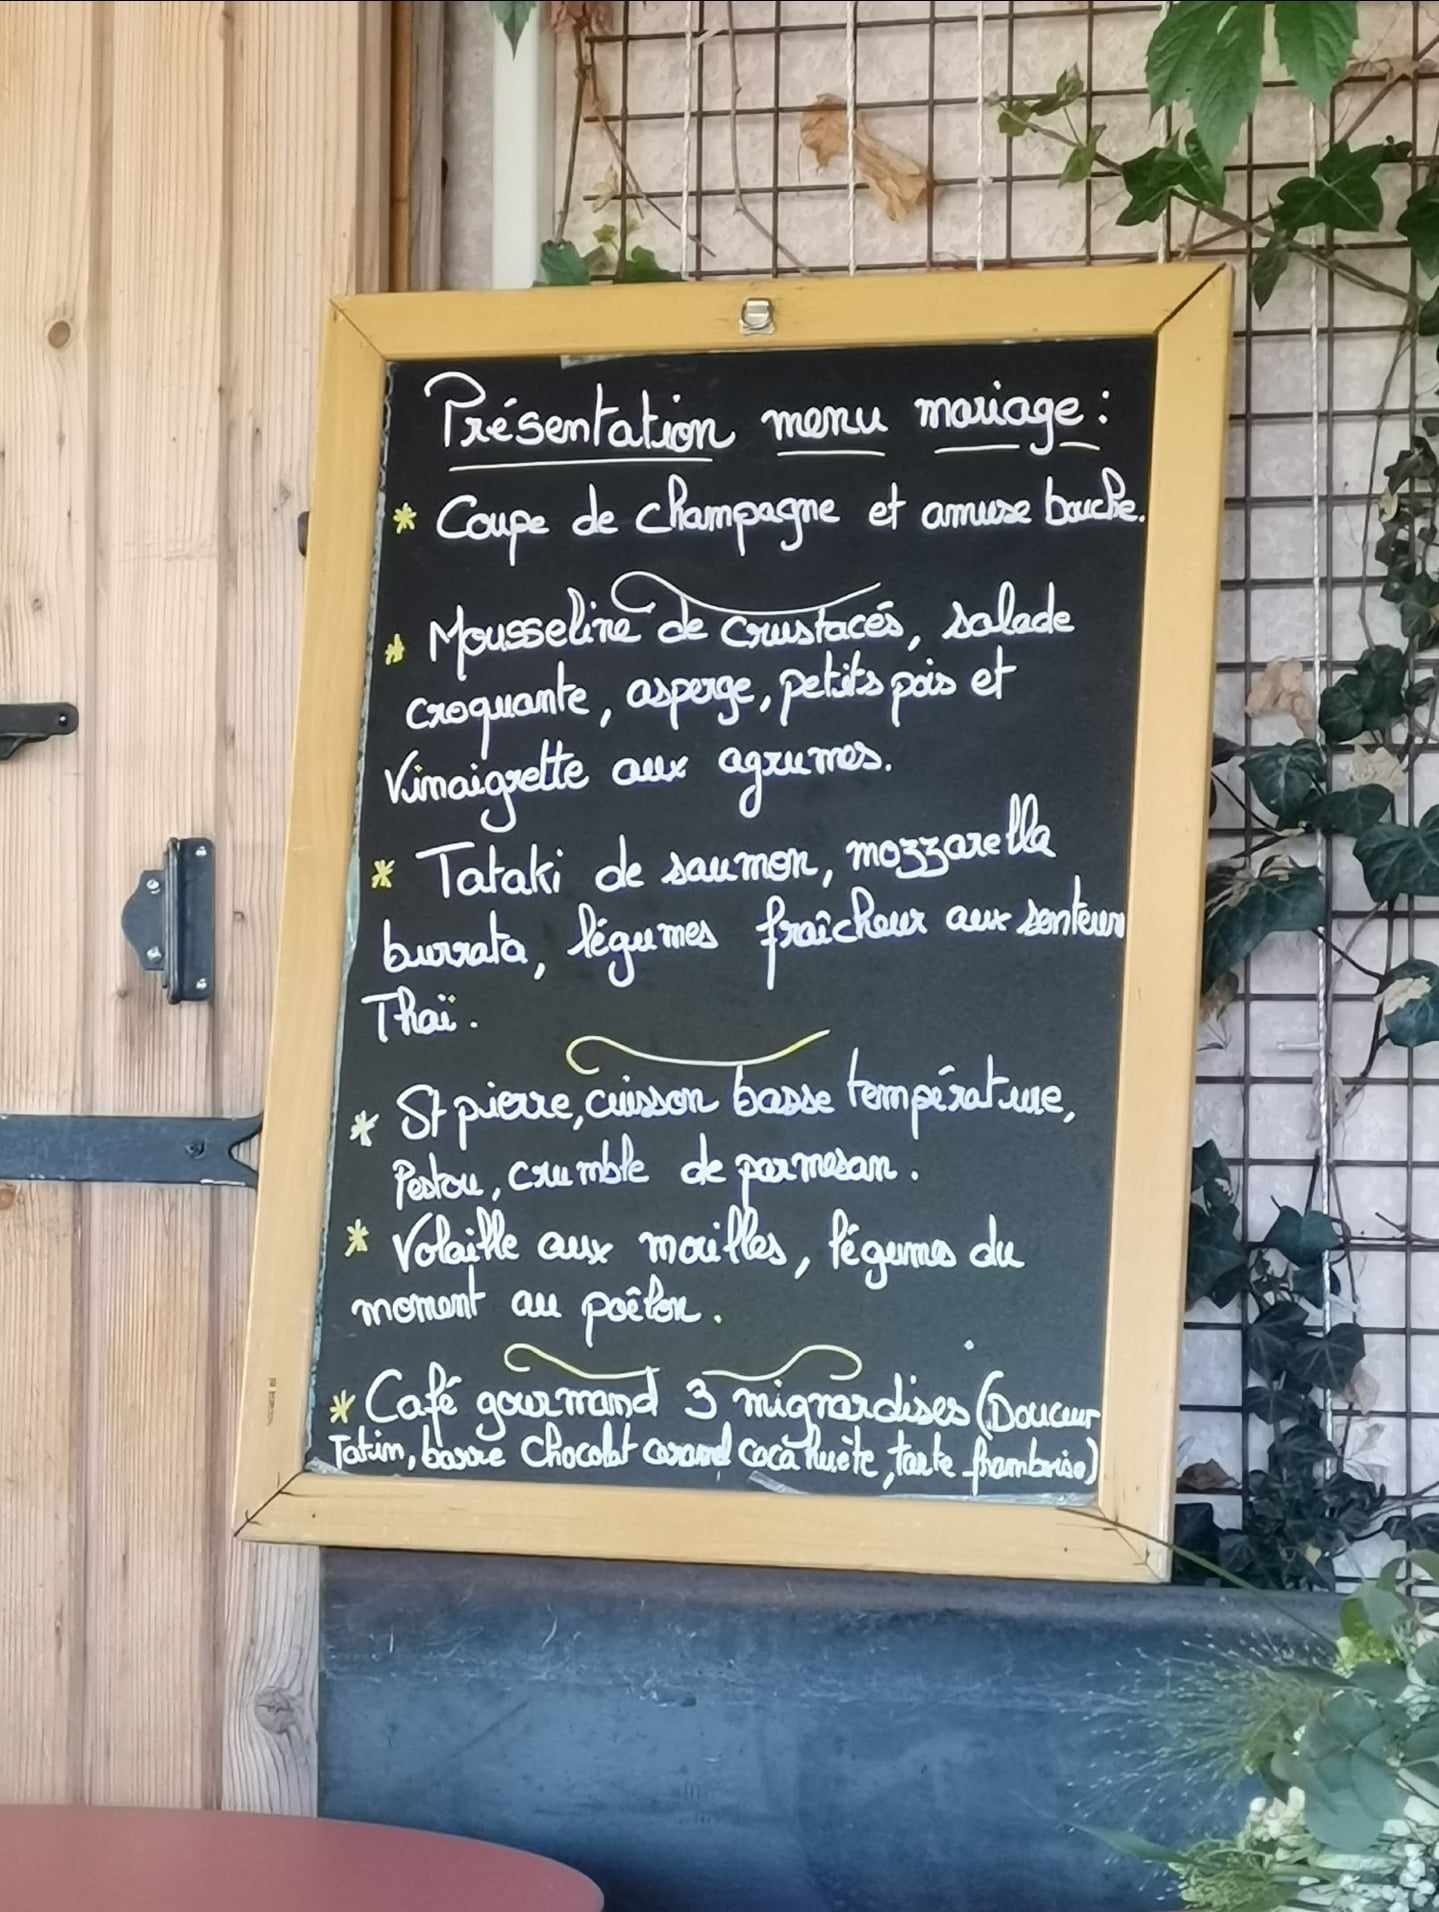 Présentation menu mariage :
* Coupe de champagne et amuse bouche.
* Mousseline de crustacés, salade
croquante, asperge, petits pois et
Vinaigrette aux agrumes.
* Tataki de saumon, mozzarella
burrata, légumes fraîcheur aux senteurs
Thaï.
* St pierre, cuisson basse température,
Pestou, crumble de parmesan.
* Volaille aux morilles, légumes du
moment au poêlon.
* Café gourmand 3 mignardises (Douceur
Tatin, barre chocolat caramel cacahuète, tarte framboise)